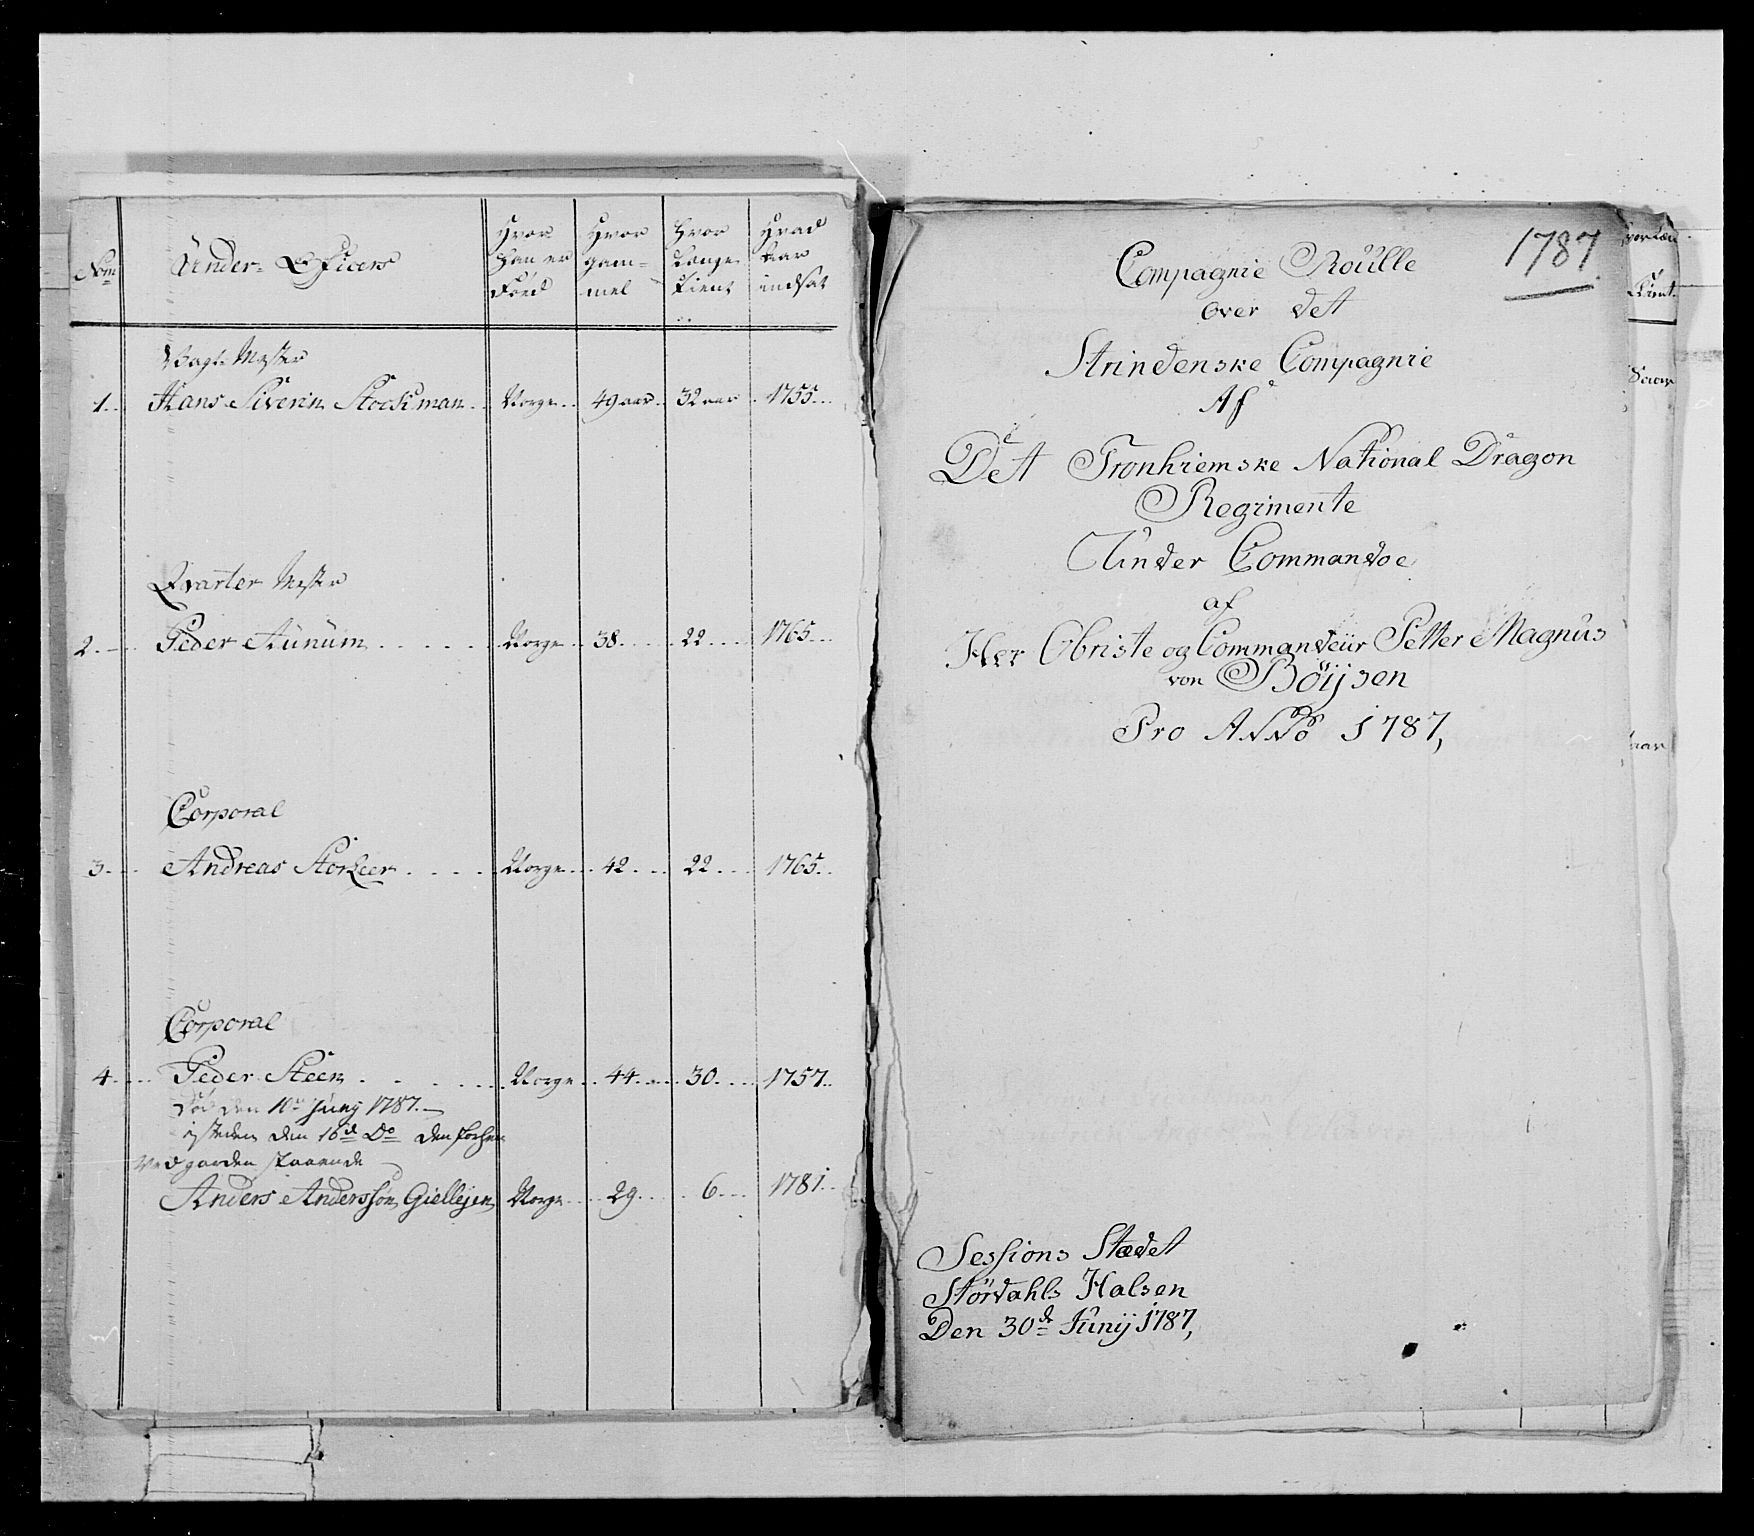 Nom
Under-Officers
Hvor Han er Föed
Hvor gam=mel
Hvor Længe Tient
Hvad Aar indsat
Vagt Mester
1. Hans Siverin Stockman Norge 49 aar 32 aar 1755
Qvarter Mester
2. Peder Aunum Norge 38 22 1765
Corporal
3. Andreas Storkeer Norge 42 22 1765
Corporal
4. Peder Steen Norge 44 30 1757
Död den 10de Junij 1787
isteden den 16d Do den
Ved garden staaende
Anders Anderssön Giellejen Norge 29 6 1781
1787
Compagnie Roulle
over det
Strindenske Compagnie
Af
Det Tronhiemske National Dragon
Regimente
Under Commandoe
af
Her Obriste og Commandeur Petter Magnus
von Böijsen
Pro Anno 1787,
Sessions Stædet
Stördahls Halsen
Den 30de Junij 1787,